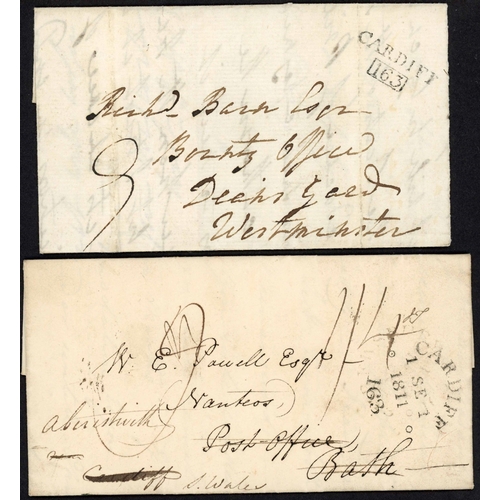 CARDIFF
163
Richd. Burn Esqr
Bounty Office
Deans Yard
Westminster
9
CARDIFF
1 SE 1
1811
163
W. E. Powell Esqr
Nanteos,
Aberistwith
Post Office,
Cardiff
Bath
S. Wales